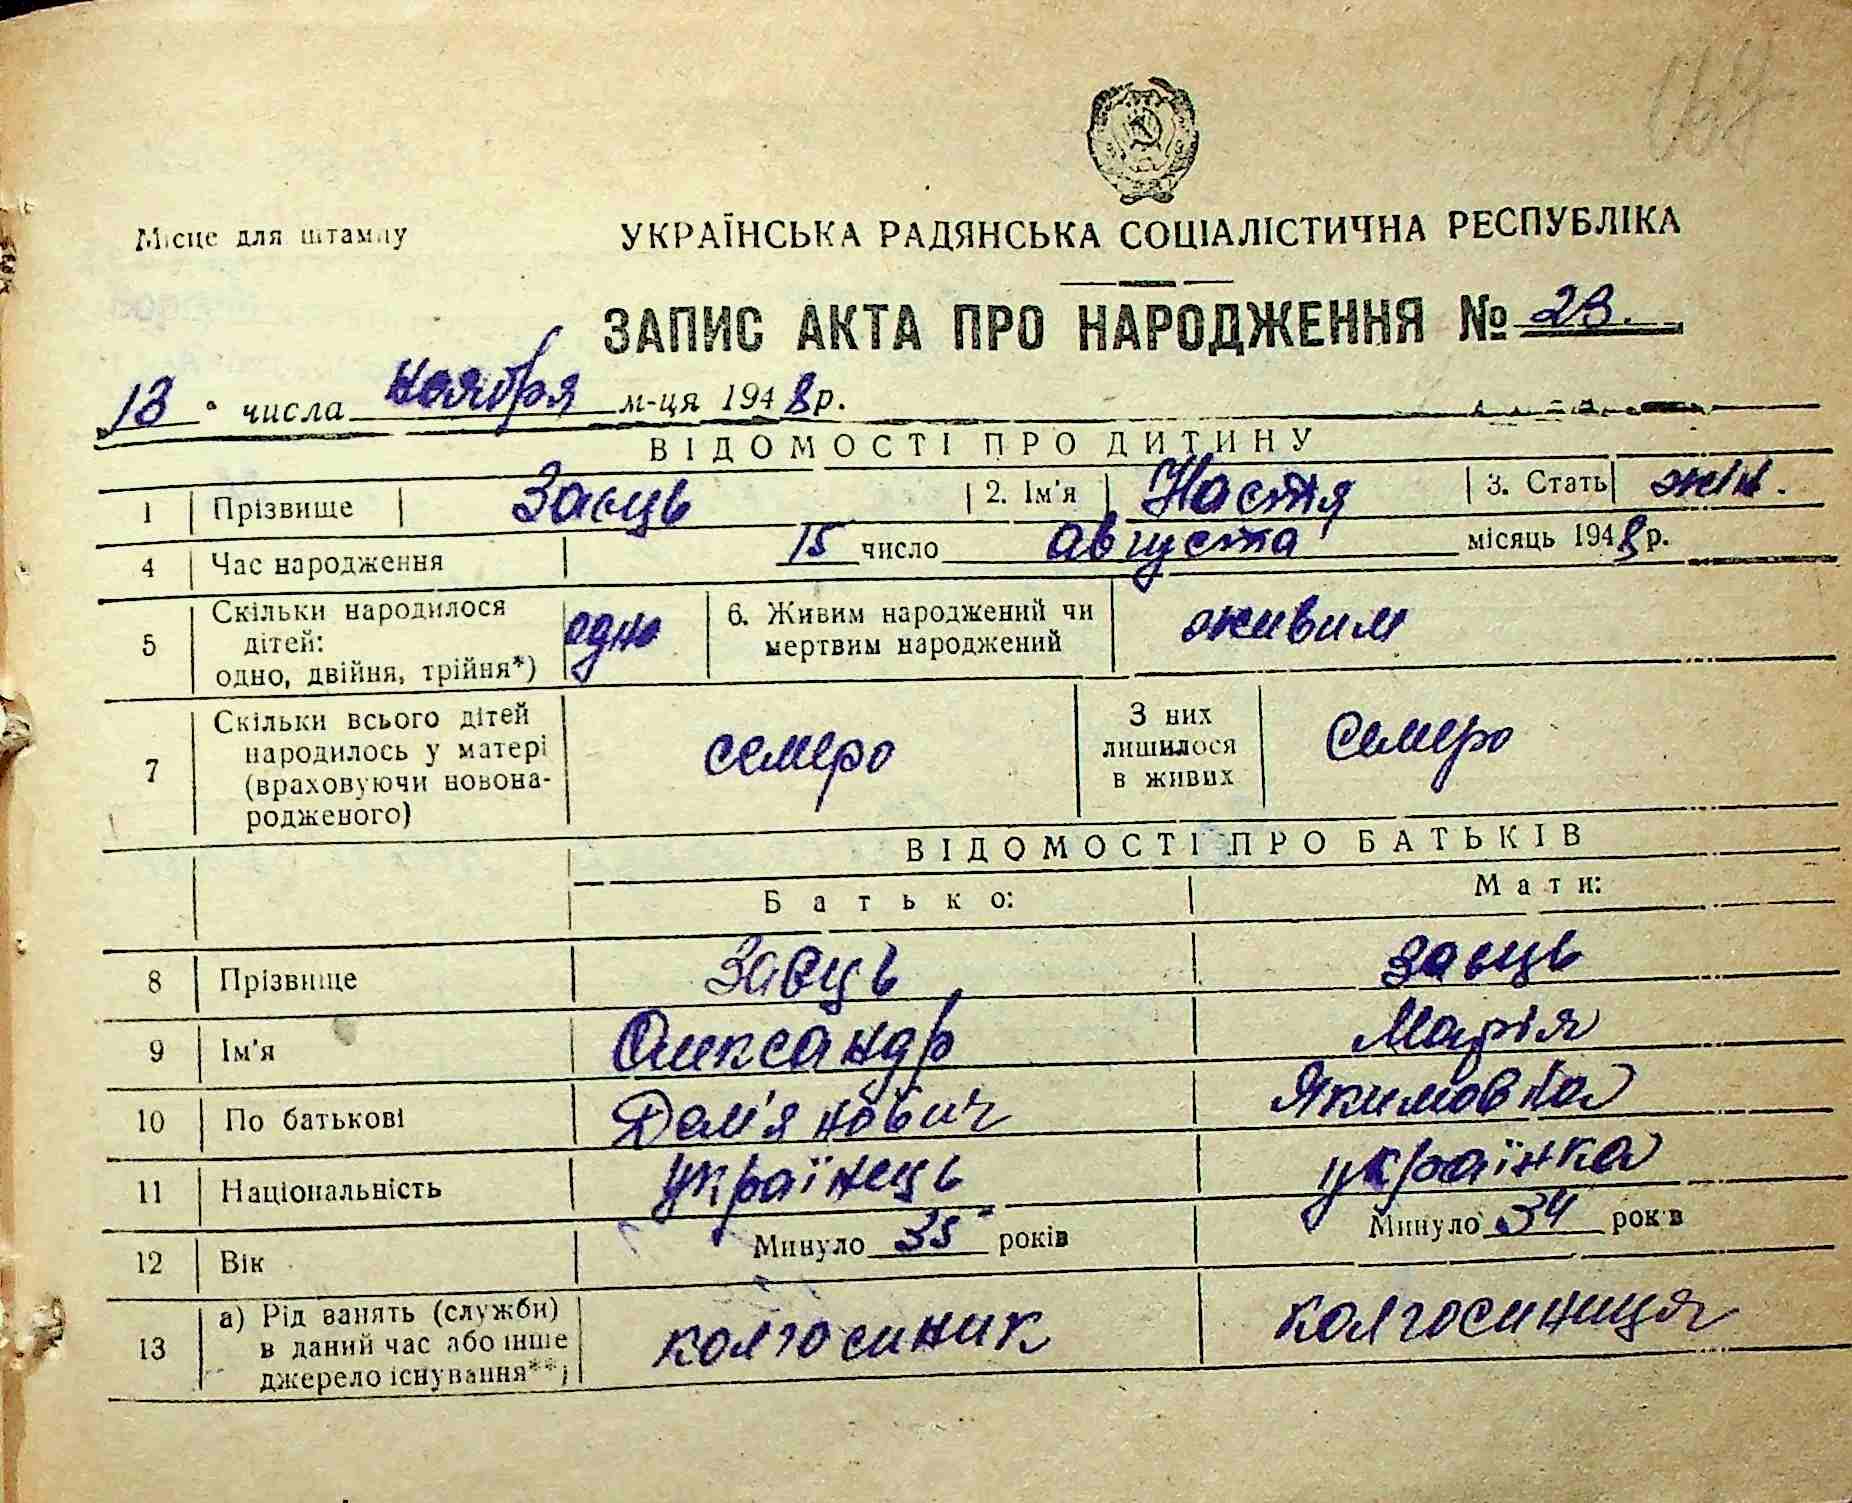 Місце для штампу
УКРАЇНСЬКА РАДЯНСЬКА СОЦІАЛІСТИЧНА РЕСПУБЛІКА
ЗАПИС АКТА ПРО НАРОДЖЕННЯ № 23.
13 числа ноября м-ця 1948 р.
ВІДОМОСТІ ПРО ДИТИНУ
1 Прізвище Заєць 2. Ім'я Настя 3. Стать жін.
4 Час народження 15 число августа місяць 1948 р.
5 Скільки народилося дітей: одно, двійня, трійня*) одно 6. Живим народжений чи мертвим народжений живим
7 Скільки всього дітей народилось у матері (враховуючи новонародженого) семеро З них лишилося в живих семеро
ВІДОМОСТІ ПРО БАТЬКІВ
Батько: Мати:
8 Прізвище Заєць Заєць
9 Ім'я Олександр Марія
10 По батькові Дем'янович Якимовна
11 Національність українець українка
12 Вік Минуло 35 років Минуло 34 років
13 а) Рід занять (служби) в даний час або інше джерело існування**) колгоспник колгоспниця